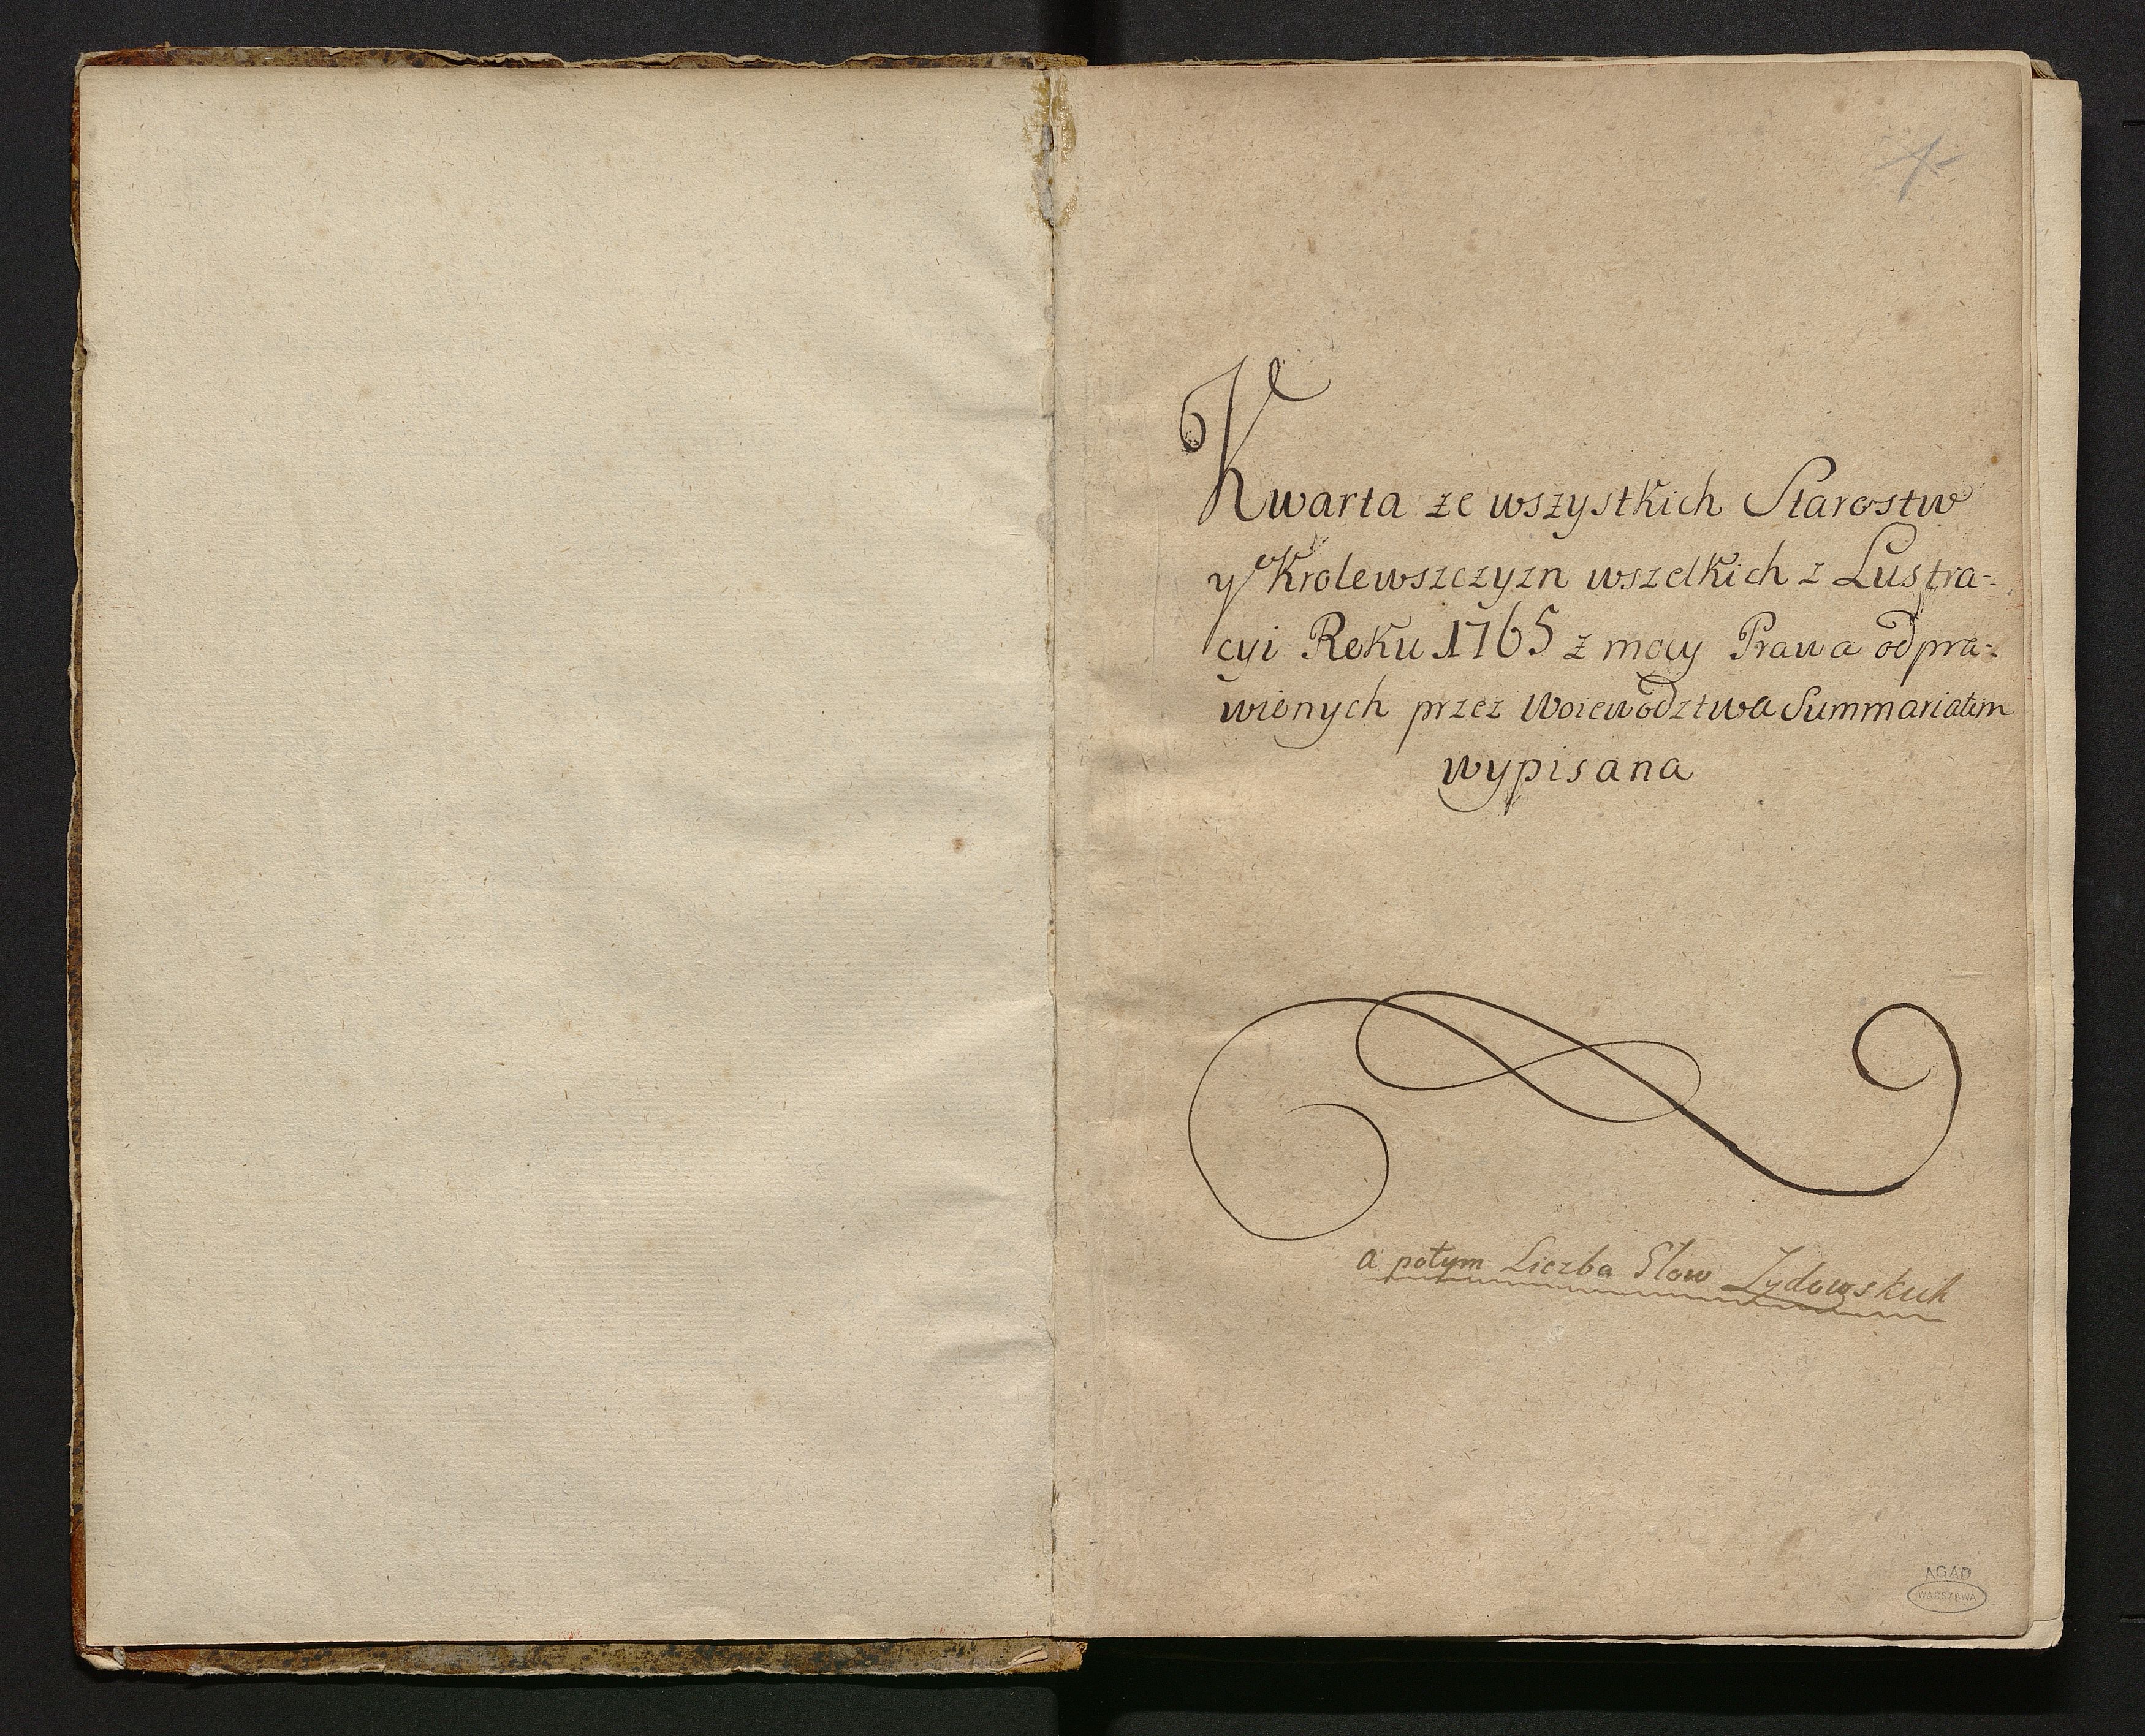 Kwarta ze wszystkich Starostw
y Krolewszczyzn wszelkich z Lustra=
cyi Roku 1765 z mocy Prawa odpra=
wionych przez Woiewodztwa Summariatim
wypisana
a potym Liczba Głow Zydowskich
AGAD
WARSZAWA